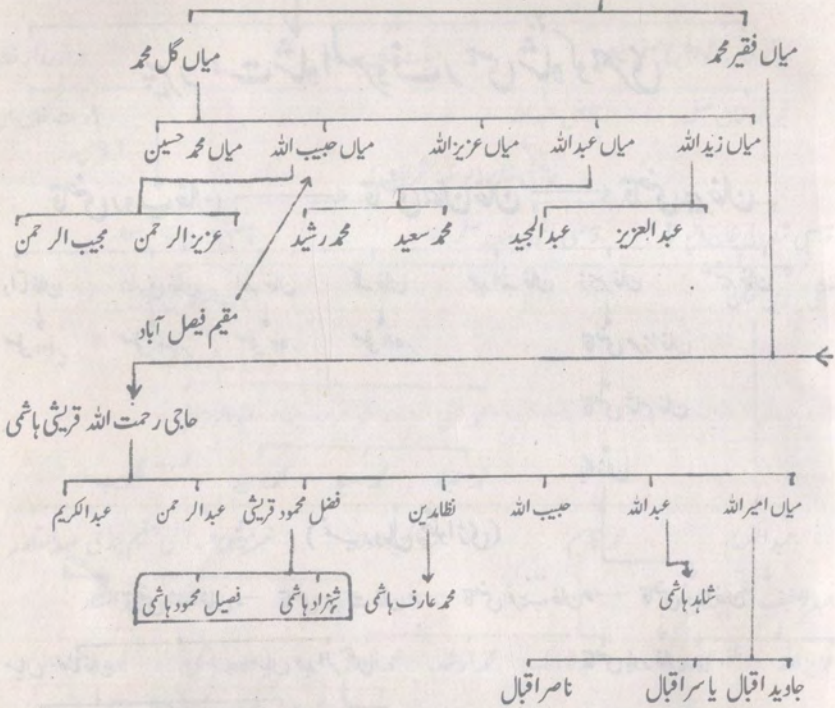 میاں فقیر محمد میاں گل محمد
میاں زید اللہ میاں عبد اللہ میاں عزیز اللہ میاں حبیب اللہ میاں محمد حسین
عبد العزیز عبد المجید محمد سعید محمد رشید عزیز الرحمن مجیب الرحمن
مقیم فیصل آباد
حاجی رحمت اللہ قریشی ہاشمی
میاں امیر اللہ عبد اللہ حبیب اللہ نظامدین فضل محمود قریشی عبد الرحمن عبد الکریم
شاہد ہاشمی محمد عارف ہاشمی شہزاد ہاشمی فصیل محمود ہاشمی
جاوید اقبال یاسر اقبال ناصر اقبال